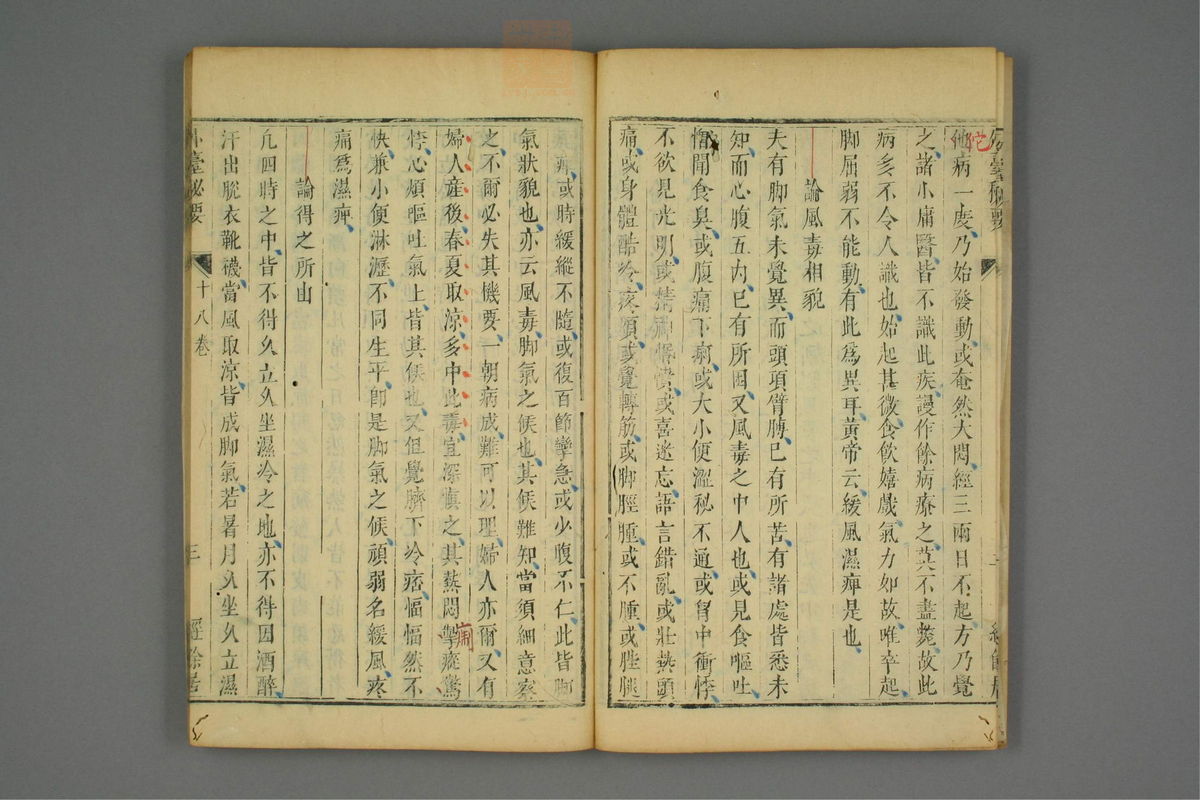 他病一度乃始發動或奄然大悶經三兩日不起方乃覺
之諸小庸醫皆不識此疾謾作餘病療之莫不盡斃故此
病多不令人識也始起甚微食飲嬉戲氣力如故唯卒起
脚屈弱不能動有此為異耳黃帝云緩風濕痺是也
論風毒相貌
夫有脚氣未覺異而頭項臂膊已有所苦有諸處皆悉未
知而心腹五內已有所困又風毒之中人也或見食嘔吐
憎聞食臭或腹痛下痢或大小便澀秘不通或胷中衝悸
不欲見光明或精神惛憒或喜迷忘語言錯亂或壯熱頭
痛或身體酷冷疼煩或覺轉筋或脚脛腫或不腫或䏶腿
頑痺或時緩縱不隨或復百節攣急或少腹不仁此皆脚
氣狀貌也亦云風毒脚氣之候也其候難知當須細意察
之不爾必失其機要一朝病成難可以理婦人亦爾又有
婦人産後春夏取涼多中此毒宜深慎之其熱悶掣瘲驚
悸心煩嘔吐氣上皆其候也又但覺臍下冷痞愊愊然不
快兼小便淋瀝不同生平即是脚氣之候頑弱名緩風疼
痛為濕痺
論得之所由
凡四時之中皆不得久立久坐濕冷之地亦不得因酒醉
汗出脫衣靴襪當風取涼皆成脚氣若暑月久坐久立濕
外臺秘要
十八卷
三
經餘居